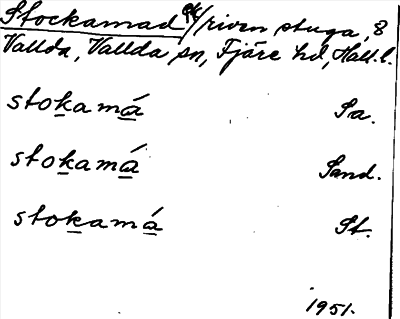 Stockamad /riven stuga, 8
Vallda, Vallda sn, Fjäre hd, Hall. l.
stokamá Sa.
stokamá Sand.
stokamá St.
1951.